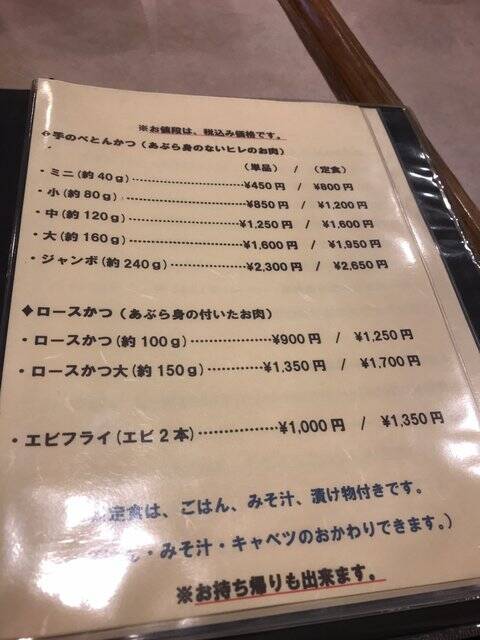 ※お値段は、税込み価格です。
◆手のべとんかつ（あぶら身のないヒレのお肉）
（単品） / （定食）
・ミニ（約40g）……………………¥450円 / ¥800円
・小（約80g）……………………¥850円 / ¥1,200円
・中（約120g）…………………¥1,250円 / ¥1,600円
・大（約160g）…………………¥1,600円 / ¥1,950円
・ジャンボ（約240g）……………¥2,300円 / ¥2,650円
◆ロースかつ（あぶら身の付いたお肉）
・ロースかつ（約100g）……………¥900円 / ¥1,250円
・ロースかつ大（約150g）…………¥1,350円 / ¥1,700円
・エビフライ（エビ２本）……………¥1,000円 / ¥1,350円
定食は、ごはん、みそ汁、漬け物付きです。
・みそ汁・キャベツのおかわりできます。）
※お持ち帰りも出来ます。